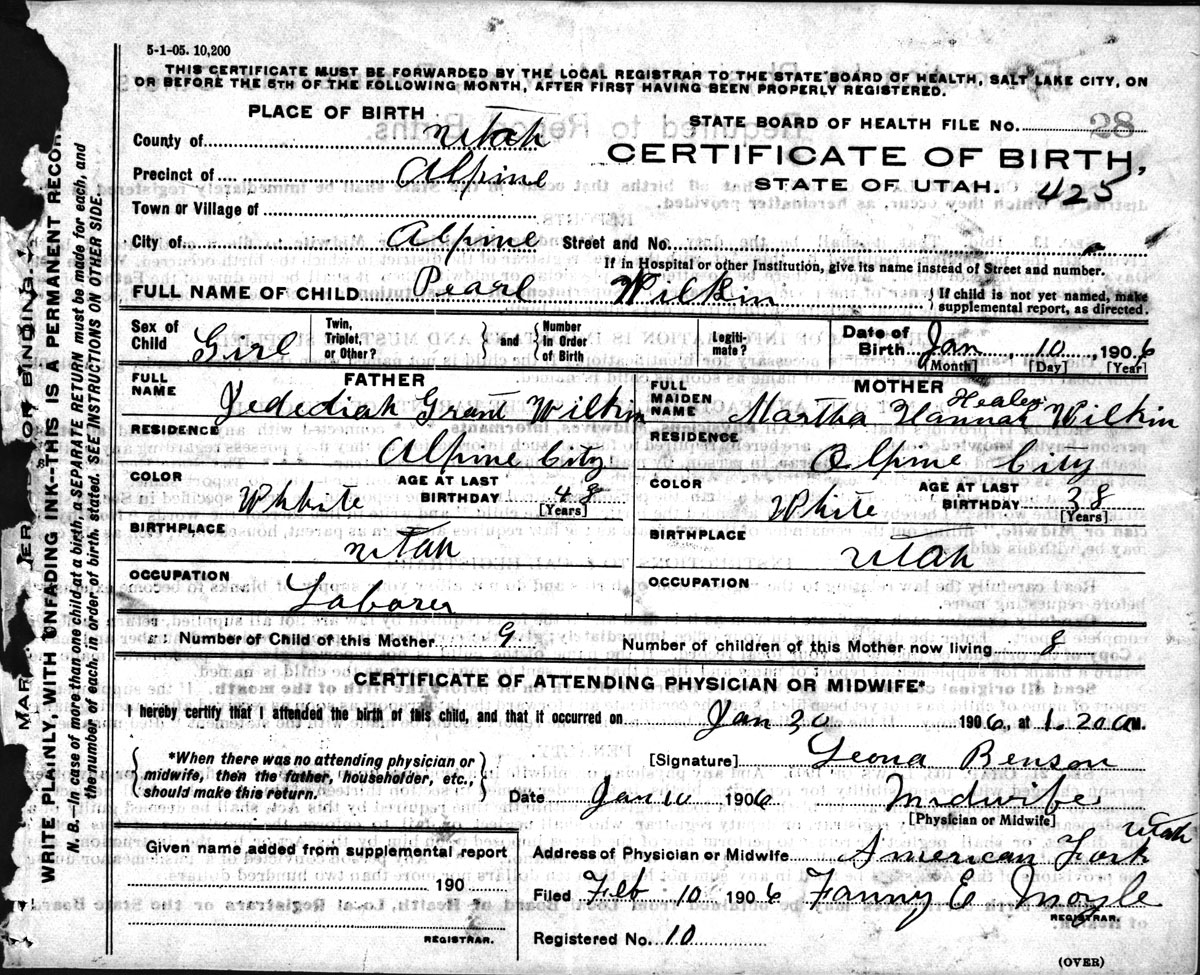 5-1-05. 10,200
THIS CERTIFICATE MUST BE FORWARDED BY THE LOCAL REGISTRAR TO THE STATE BOARD OF HEALTH, SALT LAKE CITY, ON
OR BEFORE THE 5TH OF THE FOLLOWING MONTH, AFTER FIRST HAVING BEEN PROPERLY REGISTERED.
PLACE OF BIRTH
STATE BOARD OF HEALTH FILE No. 28
County of Utah
CERTIFICATE OF BIRTH,
Precinct of Alpine
STATE OF UTAH. 425
Town or Village of
City of Alpine Street and No.
If in Hospital or other Institution, give its name instead of Street and number.
FULL NAME OF CHILD Pearl Wilkin { If child is not yet named, make supplemental report, as directed.
Sex of Child Girl Twin, Triplet, or Other? } and { Number in Order of Birth Legitimate? Date of Birth Jan 10, 1906
[Month] [Day] [Year]
FATHER
FULL NAME Jedediah Grant Wilkin
RESIDENCE Alpine City
COLOR White AGE AT LAST BIRTHDAY 48
[Years]
BIRTHPLACE Utah
OCCUPATION Laborer
MOTHER
FULL MAIDEN NAME Martha Hannah Healey Wilkin
RESIDENCE Alpine City
COLOR White AGE AT LAST BIRTHDAY 38
[Years]
BIRTHPLACE Utah
OCCUPATION
Number of Child of this Mother 9 Number of children of this Mother now living 8
CERTIFICATE OF ATTENDING PHYSICIAN OR MIDWIFE*
I hereby certify that I attended the birth of this child, and that it occurred on Jan 1906, at 1.20 a M.
{ *When there was no attending physician or
midwife, then the father, householder, etc.,
should make this return. }
[Signature] Leona Benson
Date Jan 10 1906 Midwife
[Physician or Midwife]
Given name added from supplemental report
190
REGISTRAR.
Address of Physician or Midwife American Fork Utah
Filed Feb 10 1906 Fanny E Moyle
REGISTRAR.
Registered No. 10
(OVER)
MAR ERV FOR BINDING.
WRITE PLAINLY, WITH UNFADING INK--THIS IS A PERMANENT RECOR
N. B.—In case of more than one child at a birth, a SEPARATE RETURN must be made for each, and
the number of each, in order of birth, stated. SEE INSTRUCTIONS ON OTHER SIDE.